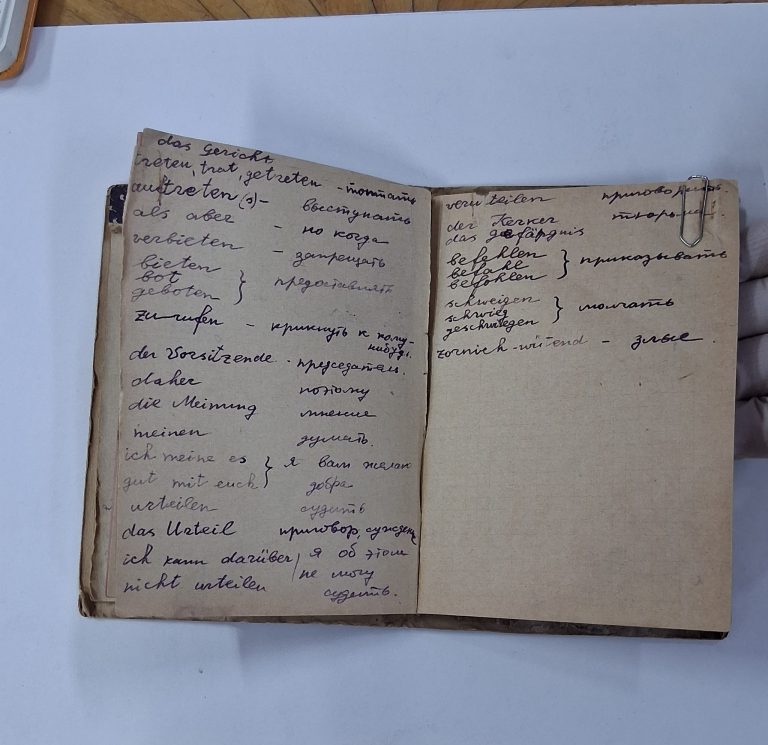 das Gericht
treten, trat, getreten - топтать
auftreten (s) - выступать
als aber - но когда
verbieten - запрещать
bieten
bot } предоставлять
geboten
zu-rufen - крикнуть к кому-
нибудь.
der Vorsitzende - председатель.
daher поэтому
die Meinung мнение
meinen думать.
ich meine es } я вам желаю
gut mit euch } добра
urteilen судить
das Urteil приговор, суждение
ich kann darüber я об этом
nicht urteilen не могу
судить.
verurteilen приговорить
der Kerker тюрьма
das gefängnis
befehlen
befahl } приказывать
befohlen
schweigen
schwieg } молчать
geschwiegen
zornich-wütend - злые